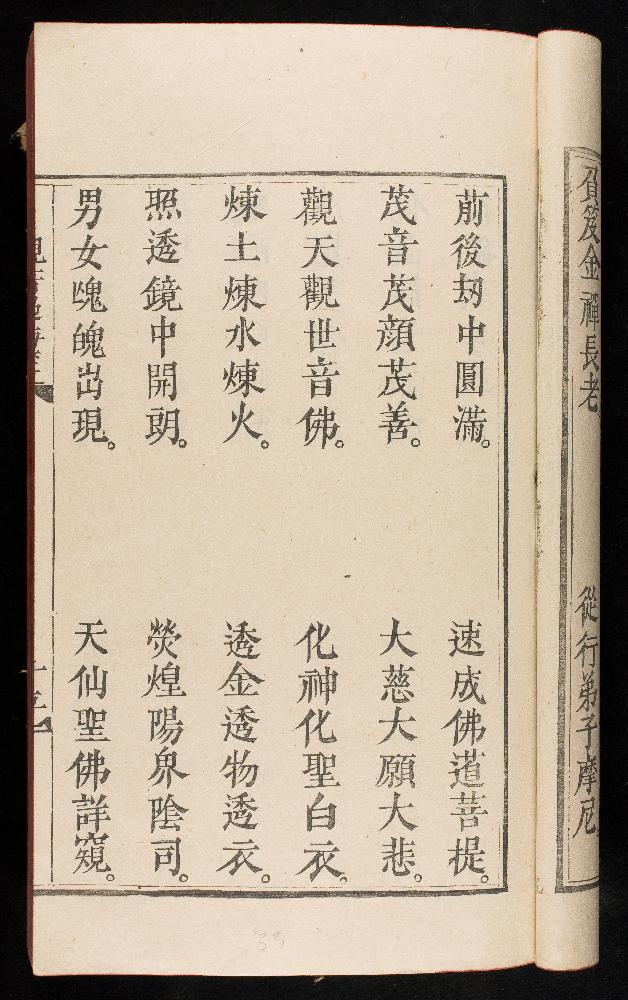 負笈金禪長老
從行弟子摩尼
前後刼中圓滿。
速成佛道菩提。
茂音茂顔茂善。
大慈大願大悲。
觀天觀世音佛。
化神化聖白衣。
煉土煉水煉火。
透金透物透衣。
照透鏡中開朗。
熒煌陽界陰司。
男女魂魄出現。
天仙聖佛詳窺。